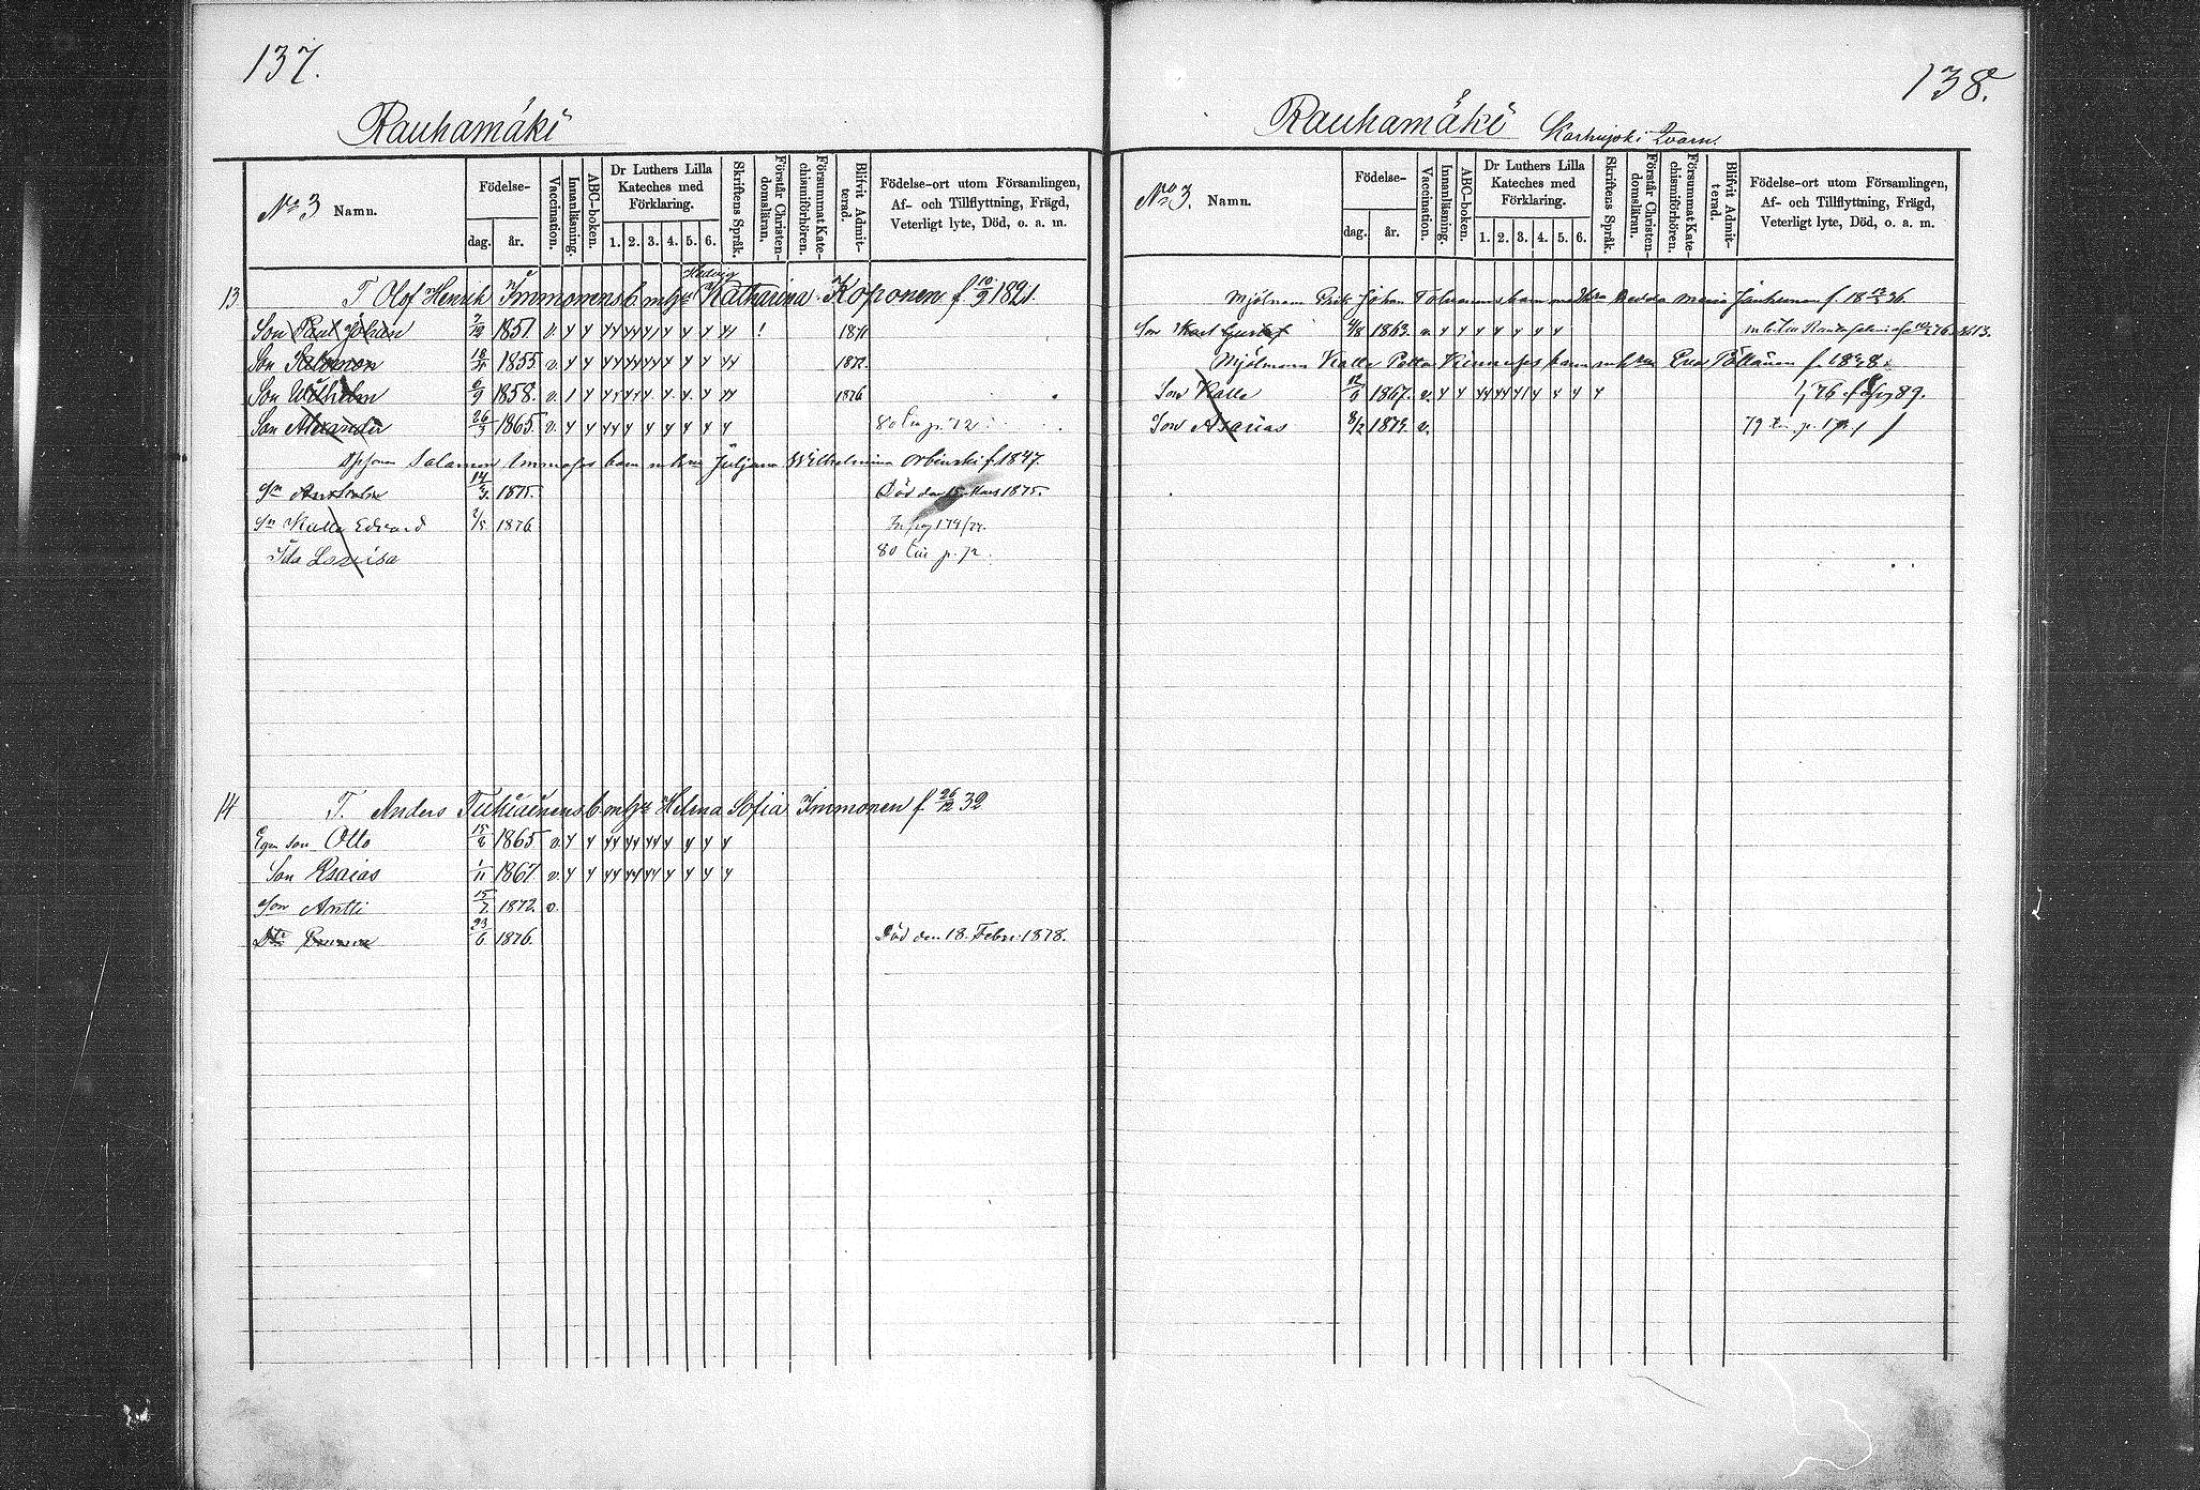 137.
Rauhamäki
No 3 Namn.
Födelse-
dag. år.
Vaccination.
Innanläsning.
ABC-boken.
Dr Luthers Lilla
Kateches med
Förklaring.
1. 2. 3. 4. 5. 6.
Skriftens Språk.
Förstår Christen-
domsläran.
Försummat Kate-
chismiförhören.
Blifvit Admit-
terad.
Födelse-ort utom Församlingen,
Af- och Tillflyttning, Frägd,
Veterligt lyte, Död, o. a. m.
Hedvig
13 T Olof Henrik Immonens b m hu Katharina Koponen f. 10/9 1821.
Son Paul Johan 7/12 1851. v. 1871
Son Salomon 18/ 1855 v. 1872.
Son Wilhelm 6/9 1858. v. 1876
Son Alexander 26/3 1865. v. 80 p. 72
Salamon Immoses barn m Juljana Wilhelmina Orbinski f. 1847.
14/3 1875. Död den 15 Mars 1875.
Kalle Edvard 2/5 1876. pag 174/77.
Ida Lovisa 80 p. 72.
14 T. Anders Tukiainens b m hu Helena Sofia Immonen f. 26/12 32
Egen son Otto 15/6 1865 v.
Son Esaias 1/11 1867 v.
Son Antti 15/7 1872. v.
Dtr Emma 23/6 1876. Död den 18. Febr. 1878.
138.
Rauhamäki Karhujoki Qvarn.
No 3. Namn.
Födelse-
dag. år.
Vaccination.
Innanläsning.
ABC-boken.
Dr Luthers Lilla
Kateches med
Förklaring.
1. 2. 3. 4. 5. 6.
Skriftens Språk.
Förstår Christen-
domsläran.
Försummat Kate-
chismiförhören.
Blifvit Admit-
terad.
Födelse-ort utom Församlingen,
Af- och Tillflyttning, Frägd,
Veterligt lyte, Död, o. a. m.
Mjölnaren Erik Johan barn med Hedda Maria Janhunen f. 18 36
Son Karl Gustaf 4/8 1863. v.
Mjölnaren Kalle barn m Eva Pöllänen f.
Son Kalle 12/6 1867. v. 76 89.
Son Asarias 8/12 1874. v. 79 p.